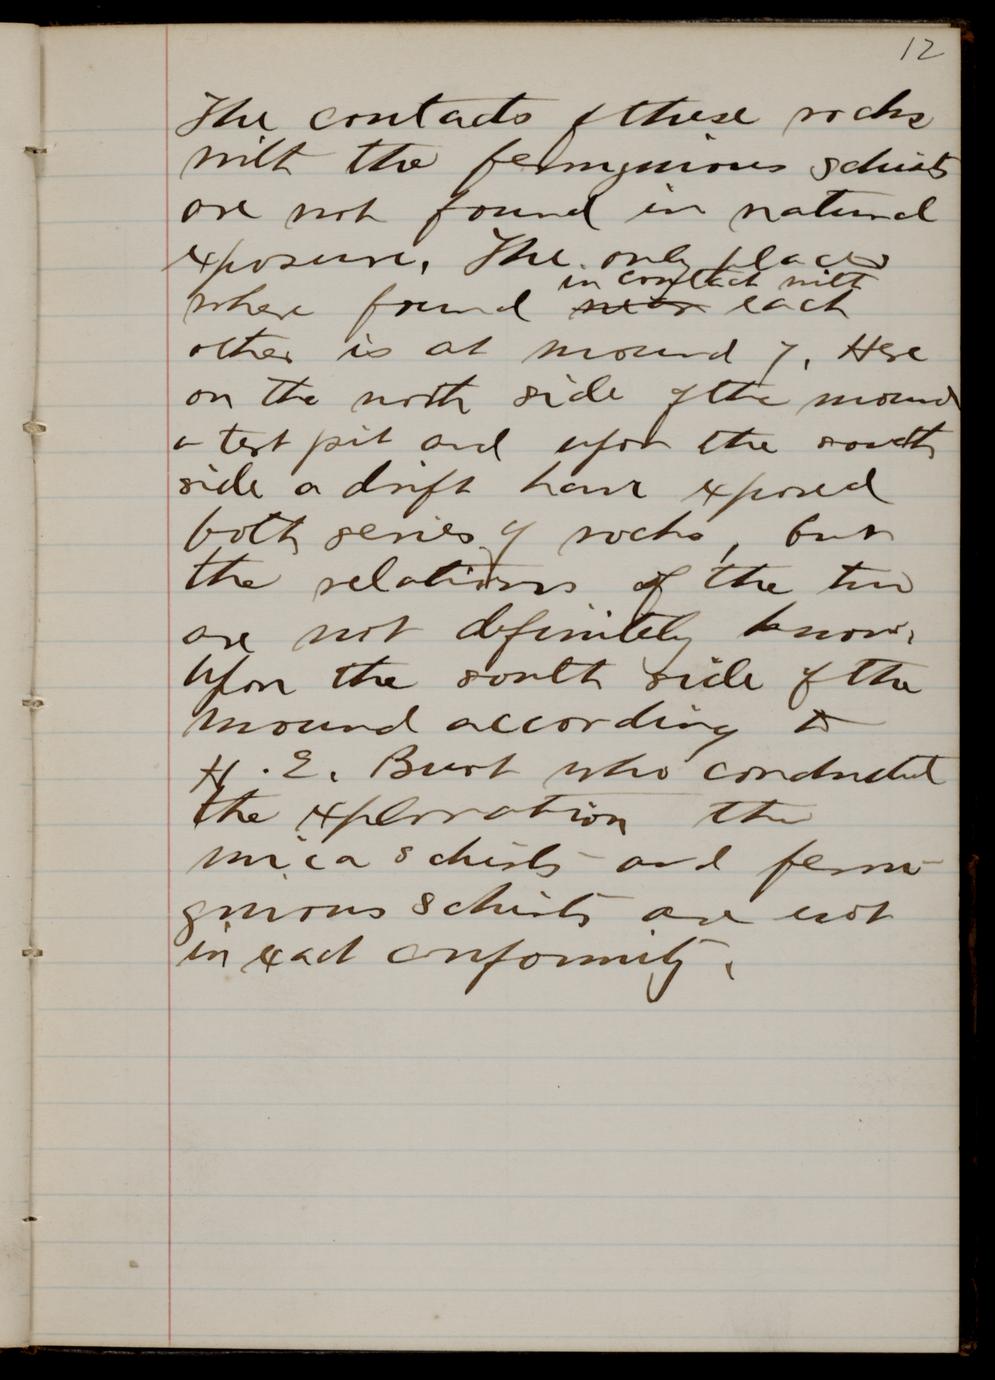 12
The contacts of these rocks
with the ferruginous schists
are not found in natural
exposure. The only places
in contact with
where found near each
other is at mound 7. Here
on the north side of the mound
a test pit and upon the south
side a drift have exposed
both series of rocks, but
the relations of the two
are not definitely known.
Upon the south side of the
mound according to
H. E. Burt who conducted
the exploration the
mica schists and ferru-
ginous schists are not
in exact conformity.